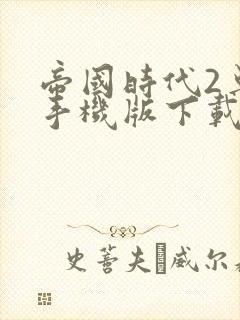 帝國時代2
手機版下載
史蒂夫·威尔